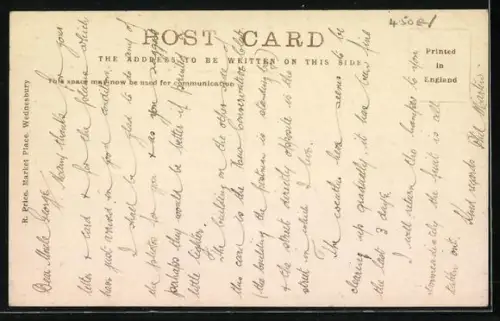 450
POST CARD
THE ADDRESS TO BE WRITTEN ON THIS SIDE
This space may now be used for communication
Printed
in
England
R. Price, Market Place, Wednesbury
Dear Uncle George
Many thanks for your
letter & card & for the photos which
have just arrived in good condition.
I shall be glad to do any of
the photos for you & as you suggest
perhaps they would be better if printed a
little lighter.
The building on the other side of
this card is the Conservative Club
(the building the postman is standing by)
& the street directly opposite is the
street in which I live.
The weather here seems to be
clearing up gradually, it has been fine
the last 3 days
I will return the hamper to you
immediately the fruit is all
taken out.
Kind regards